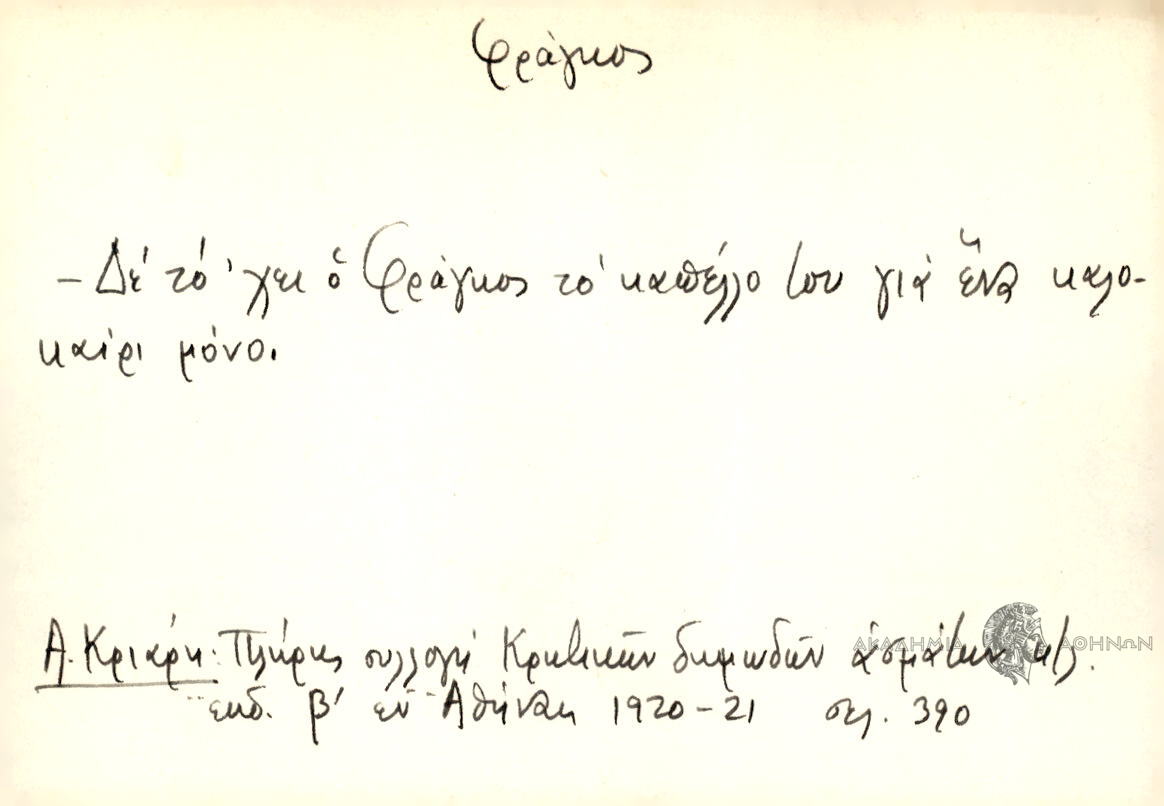 Φράγκος
– Δέ τό 'χει ὁ Φράγκος τό καπέλλο του γιά ἕνα καλο-
καίρι μόνο.
Α. Κριάρη: Πλήρης συλλογή Κρητικῶν δημωδῶν ἀσμάτων κτλ.
ἐκδ. β' ἐν Ἀθήναις 1920-21 σελ. 390
ΑΚΑΔΗΜΙΑ ΑΘΗΝΩΝ